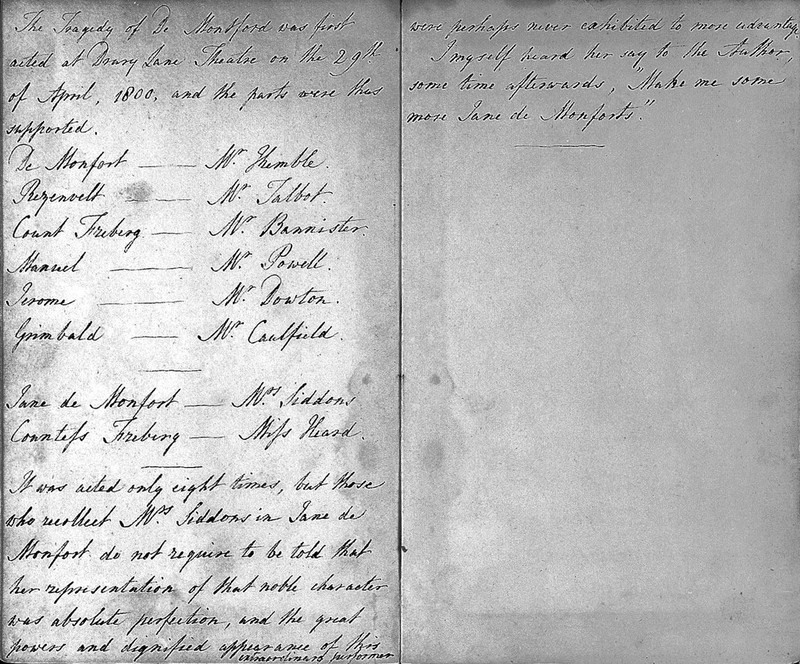 The Tragedy of De Montford was first
acted at Drury Lane Theatre on the 29th
of April, 1800, and the parts were thus
supported.
De Monfort —— Mr. Kemble.
Rezenvelt —— Mr. Talbot.
Count Freberg — Mr. Bannister.
Manuel —— Mr. Powell.
Jerome —— Mr. Dowton.
Grimbald —— Mr. Caulfield.
Jane de Monfort — Mrs. Siddons
Countess Freberg — Miss Heard.
It was acted only eight times, but those
who recollect Mrs. Siddons in Jane de
Monfort do not require to be told that
her representation of that noble character
was absolute perfection, and the great
powers and dignified appearance of this
extraordinary performer
were perhaps never exhibited to more advantage.
I myself heard her say to the Author,
some time afterwards, "Make me some
more Jane de Monforts".